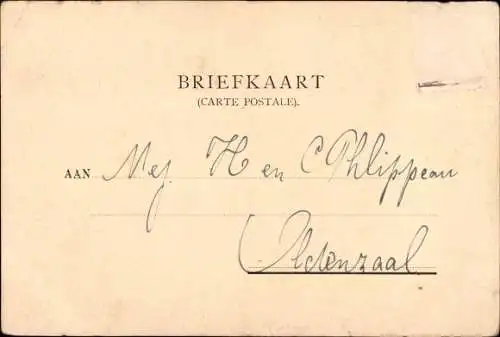 BRIEFKAART
(CARTE POSTALE).
AAN Mej. H en C Phlippeau
Oldenzaal.